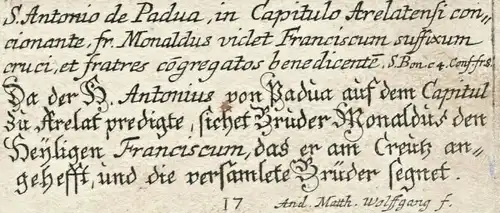 S. Antonio de Padua, in Capitulo Arelatensi con-
cionante, fr. Monaldus videt Franciscum suffixum
cruci, et fratres cōgregatos benedicentē. S. Bon. c. 4. Conf. frs.
Da der H. Antonius von Padua auf dem Capitul
zu Arelat predigte, sichet Bruder Monaldus den
Heÿligen Franciscum, das er am Creütz an-
gehefft, und die versamlete Brüder segnet.
17 And. Matth. Wolffgang f.